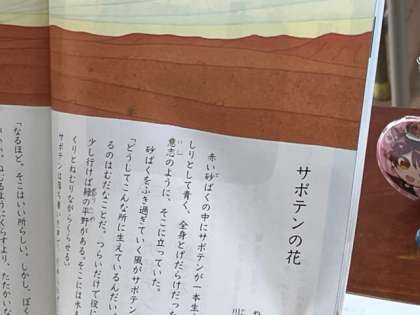 サボテンの花
赤い砂ばくの中にサボテンが一本生
しりとして青く、全身とげだらけだっ
意志のように、そこに立っていた。
砂ばくをふき過ぎていく風がサボテン
「どうしてこんな所に生えているんだい。
るのはむだなことだ。つらいだけで役に
少し行けば緑の平野がある。そこには水も
くりとねむりながらくらせる。
「なるほど。そこはいい所らしい。しかし、ぼく